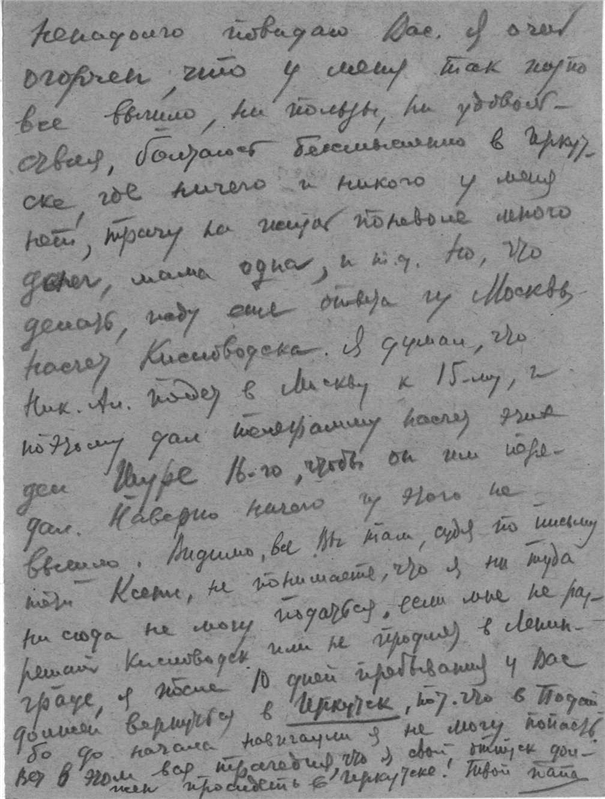 ненадолго повидаю Вас. Я очень
огорчен, что у меня так
все вышло, ни пользы, ни удоволь-
ствия, болтаюсь бессмысленно в Иркут-
ске, где ничего и никого у меня
нет, трачу на поневоле много
денег, мама одна, и т.д. Но, что
делать, жду еще ответа из Москвы
насчет Кисловодска. Я думал, что
Ник. Ал. поедет в Москву к 15-му, и
поэтому дал телеграмму насчет этих
дел Шуре, чтобы он им пере-
дал. Наверно ничего из этого не
вышло. Видимо, все Вы там, судя по письму
тети Ксени, не понимаете, что я ни туда
ни сюда не могу податься. если мне не раз-
решат Кисловодск или не продлят в Ленин-
граде, я после 10 дней пребывания у Вас
должен вернуться в Иркутск, пот. что в
бо до начала навигации я не могу попасть.
Вот в этом вся трагедия, что я свой отпуск дол-
жен просидеть в Иркутске! Твой папа